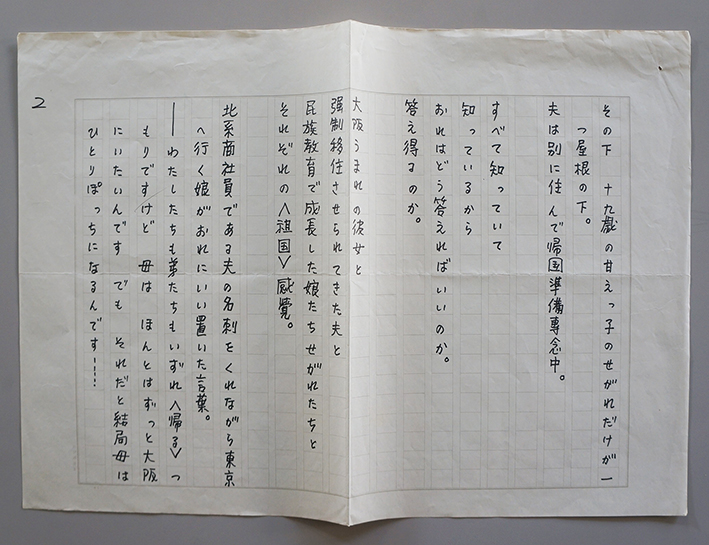 2
その下 十九歳の甘えっ子のせがれだけが一
つ屋根の下。
夫は別に住んで帰国準備専念中。
すべて知っていて
知っているから
おれはどう答えればいいのか。
答え得るのか。
大阪うまれの彼女と
強制移住させられてきた夫と
民族教育で成長した娘たちせがれたちと
それぞれの〈祖国〉感覚。
北系商社員である夫の名刺をくれながら東京
へ行く娘がおれにいい置いた言葉。
―わたしたちも弟たちもいずれ〈帰る〉つ
もりですけど 母は ほんとはずっと大阪
にいたいんです でも それだと結局母は
ひとりぽっちになるんです……